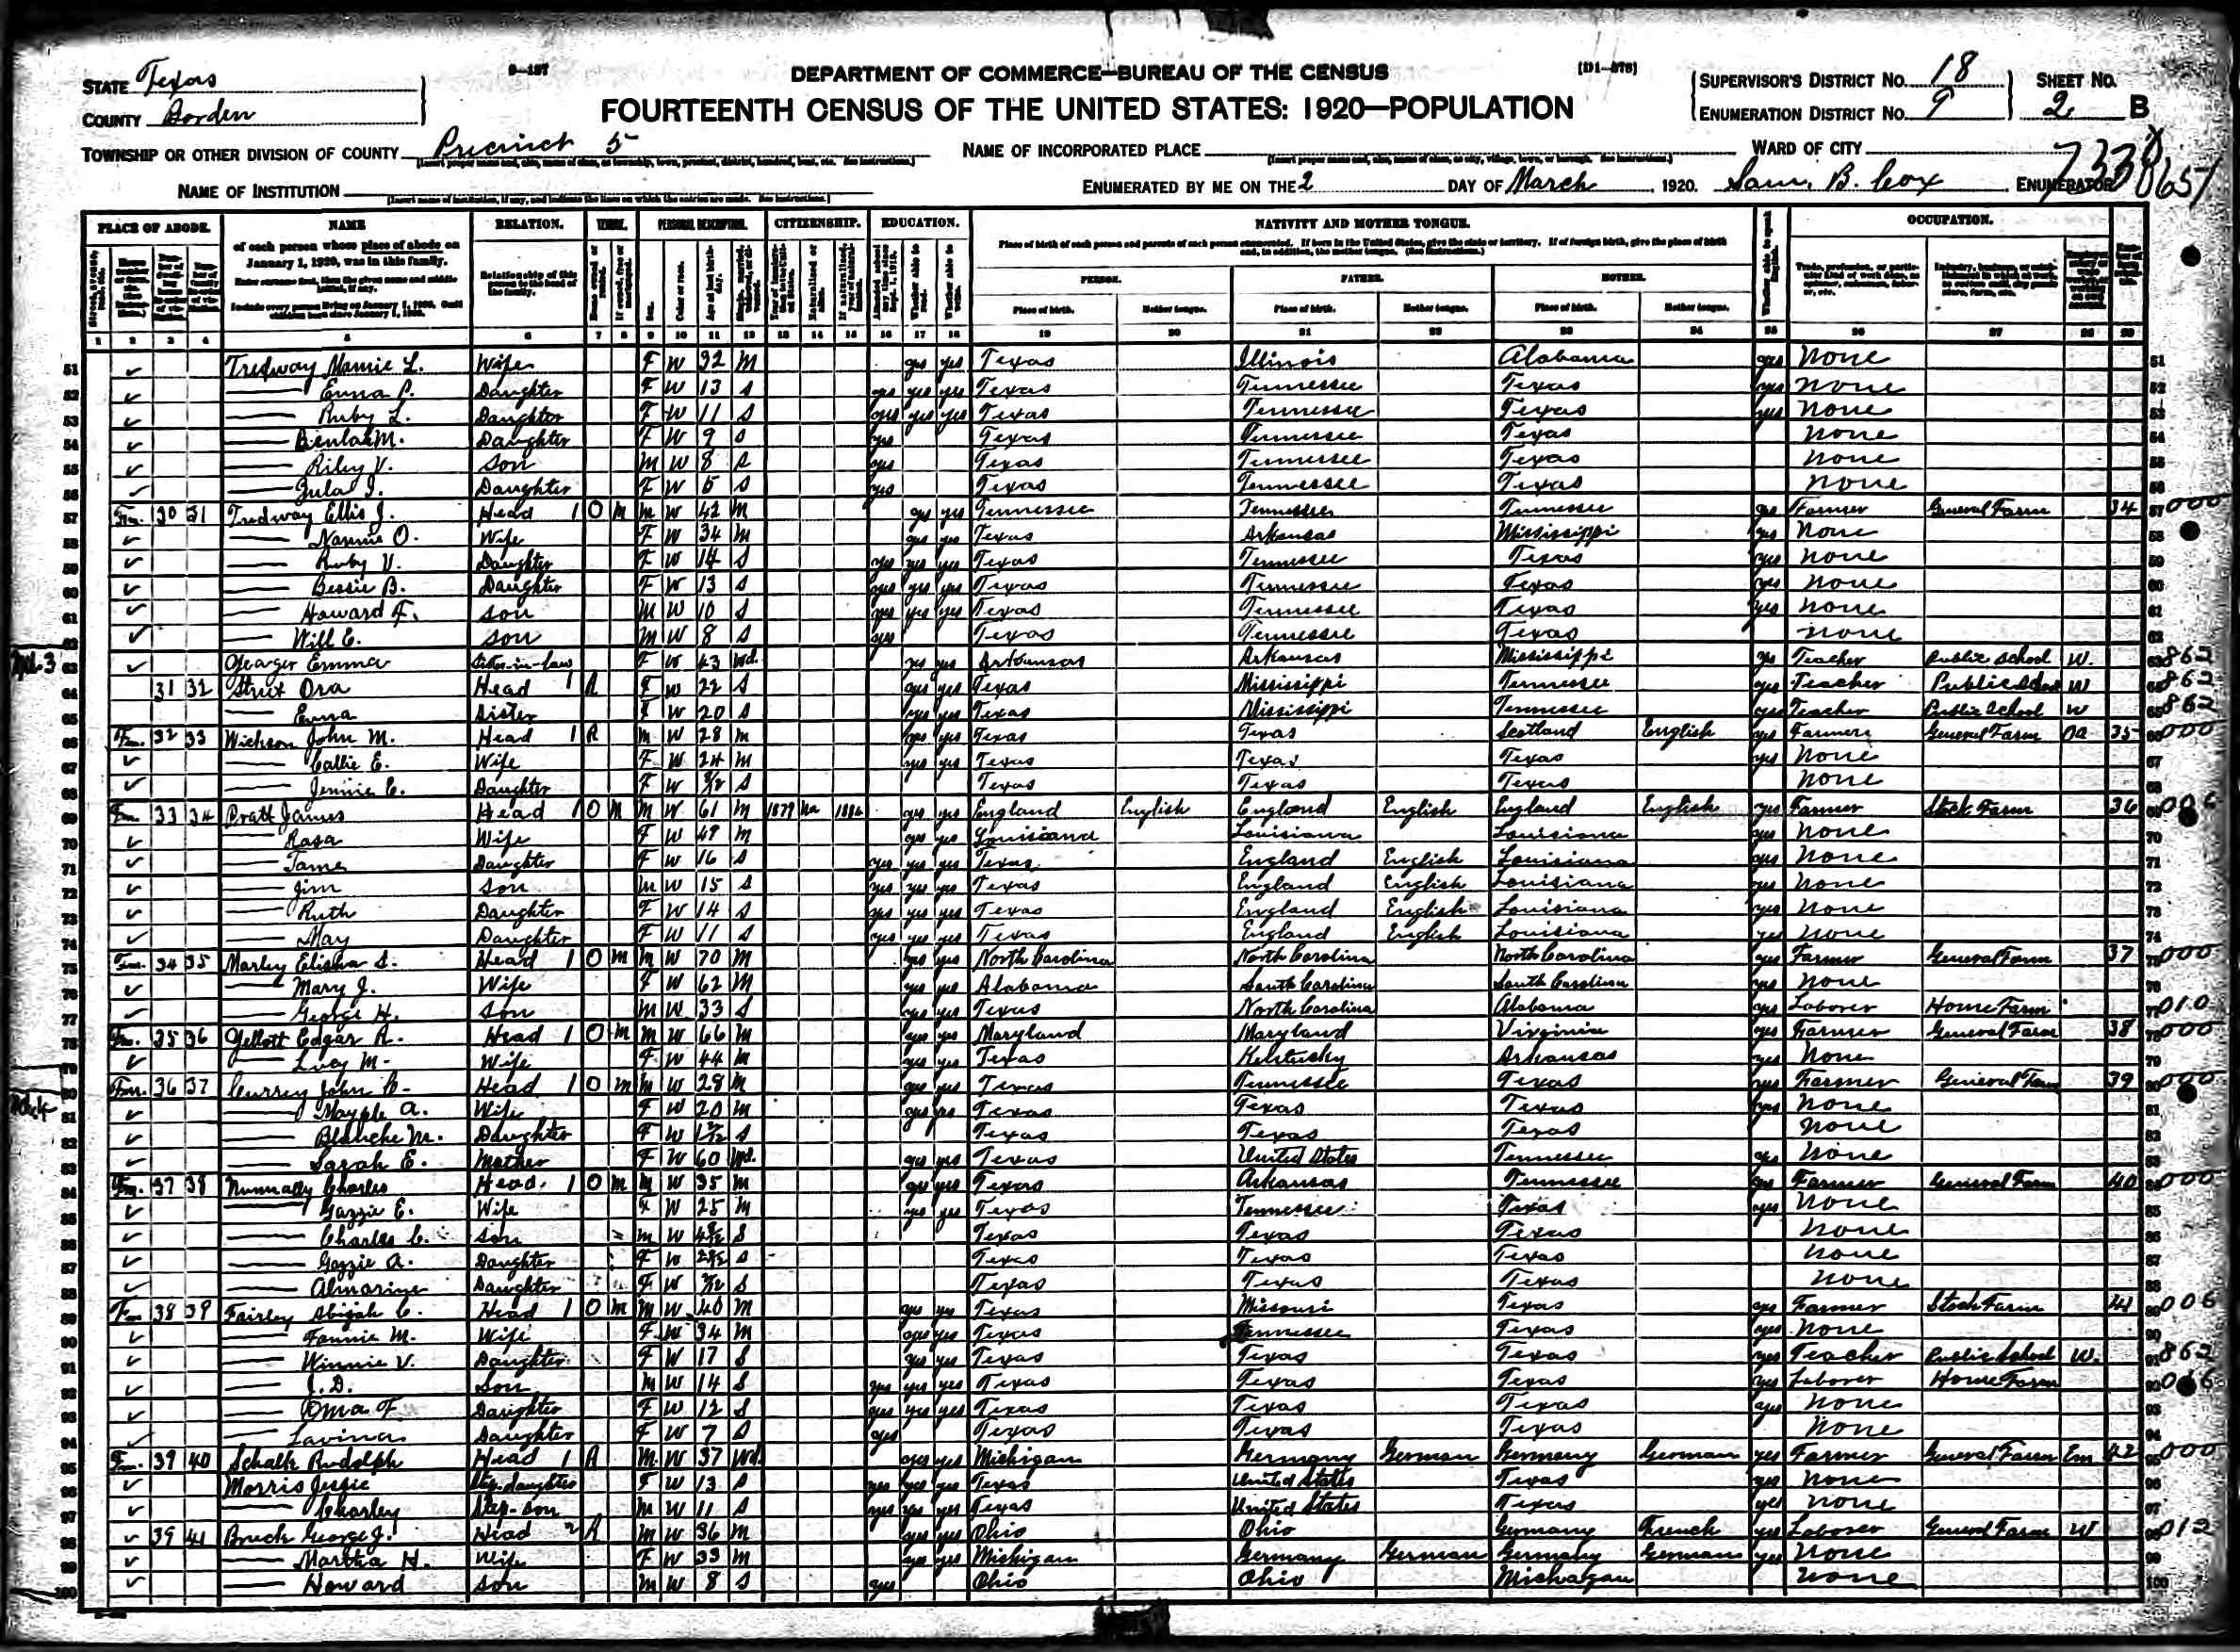 9-197
DEPARTMENT OF COMMERCE—BUREAU OF THE CENSUS
FOURTEENTH CENSUS OF THE UNITED STATES: 1920—POPULATION
STATE Texas
COUNTY Borden
SUPERVISOR'S DISTRICT No. 18
ENUMERATION DISTRICT No. 9
SHEET No. 2 B
TOWNSHIP OR OTHER DIVISION OF COUNTY Precinct 5
NAME OF INCORPORATED PLACE
WARD OF CITY
NAME OF INSTITUTION
ENUMERATED BY ME ON THE 2 DAY OF March, 1920. Sam. B. Cox, ENUMERATOR
PLACE OF ABODE. NAME RELATION. PERSONAL DESCRIPTION. CITIZENSHIP. EDUCATION. NATIVITY AND MOTHER TONGUE. OCCUPATION.
of each person whose place of abode on January 1, 1920, was in this family.
Relationship of this person to the head of the family.
Place of birth of each person and parents of each person enumerated. If born in the United States, give the state or territory. If of foreign birth, give the place of birth and, in addition, the mother tongue. (See Instructions.)
PERSON. FATHER. MOTHER.
Place of birth. Mother tongue. Place of birth. Mother tongue. Place of birth. Mother tongue.
1 2 3 4 5 6 7 8 9 10 11 12 13 14 15 16 17 18 19 20 21 22 23 24 25 26 27 28 29
51 Tredway Mamie L. Wife F W 32 M yes yes Texas Illinois Alabama yes None 51
52 — Emma P. Daughter F W 13 S yes yes yes Texas Tennessee Texas yes None 52
53 — Ruby L. Daughter F W 11 S yes yes yes Texas Tennessee Texas yes None 53
54 — Beulah M. Daughter F W 9 S yes Texas Tennessee Texas None 54
55 — Riley V. Son M W 8 S yes Texas Tennessee Texas None 55
56 — Daughter F W 5 S yes Texas Tennessee Texas None 56
57 Fm. 30 31 Tredway Ellis J. Head 1 O M M W 42 M yes yes Tennessee Tennessee Tennessee yes Farmer General Farm 34 57 000
58 — Nannie O. Wife F W 34 M yes yes Texas Arkansas Mississippi yes None 58
59 — Ruby V. Daughter F W 14 S yes yes yes Texas Tennessee Texas yes None 59
60 — Bessie B. Daughter F W 13 S yes yes yes Texas Tennessee Texas yes None 60
61 — Howard F. Son M W 10 S yes yes yes Texas Tennessee Texas yes None 61
62 — Will E. Son M W 8 S yes Texas Tennessee Texas None 62
63 Yeager Emma Sister-in-law F W 43 Wd. yes yes Arkansas Arkansas Mississippi yes Teacher Public School W. 63 862
64 31 32 Street Ora Head 1 R F W 22 S yes yes Texas Mississippi Tennessee yes Teacher Public School W 64 862
65 — Emma Sister F W 20 S yes yes Texas Mississippi Tennessee yes Teacher Public School W 65 862
66 Fm. 32 33 John M. Head 1 R M W 28 M yes yes Texas Texas Scotland English yes Farmer General Farm OA 35 66 000
67 — Callie E. Wife F W 24 M yes yes Texas Texas Texas yes None 67
68 — Jennie E. Daughter F W S Texas Texas Texas None 68
69 Fm. 33 34 Pratt James Head 1 O M M W 61 M 1879 Na 1884 yes yes England English England English England English yes Farmer Stock Farm 36 69 006
70 — Rosa Wife F W 48 M yes yes Louisiana Louisiana Louisiana yes None 70
71 — Daughter F W 16 S yes yes yes Texas England English Louisiana yes None 71
72 — Jim Son M W 15 S yes yes yes Texas England English Louisiana yes None 72
73 — Ruth Daughter F W 14 S yes yes yes Texas England English Louisiana yes None 73
74 — May Daughter F W 11 S yes yes yes Texas England English Louisiana yes None 74
75 Fm. 34 35 Marley Elisha S. Head 1 O M M W 70 M yes yes North Carolina North Carolina North Carolina yes Farmer General Farm 37 75 000
76 — Mary J. Wife F W 62 M yes yes Alabama South Carolina South Carolina yes None 76
77 — George H. Son M W 33 S yes yes Texas North Carolina Alabama yes Laborer Home Farm 77 010
78 Fm. 35 36 Edgar R. Head 1 O M M W 66 M yes yes Maryland Maryland Virginia yes Farmer General Farm 38 78 000
79 — Lucy M. Wife F W 44 M yes yes Texas Kentucky Arkansas yes None 79
80 Fm. 36 37 Currey John B. Head 1 O M M W 28 M yes yes Texas Tennessee Texas yes Farmer General Farm 39 80 000
81 — A. Wife F W 20 M yes yes Texas Texas Texas yes None 81
82 — Blanche M. Daughter F W S Texas Texas Texas None 82
83 — Sarah E. Mother F W 60 Wd. yes yes Texas United States Tennessee yes None 83
84 Fm. 37 38 Nunnally Charles Head 1 O M M W 35 M yes yes Texas Arkansas Tennessee yes Farmer General Farm 40 84 000
85 — Gazzie E. Wife F W 25 M yes yes Texas Tennessee Texas yes None 85
86 — Charles C. Son M W S Texas Texas Texas None 86
87 — Gazzie A. Daughter F W S Texas Texas Texas None 87
88 — Almarine Daughter F W S Texas Texas Texas None 88
89 Fm 38 39 Fairley Abijah C. Head 1 O M M W 40 M yes yes Texas Missouri Texas yes Farmer Stock Farm 41 89 006
90 — Fannie M. Wife F W 34 M yes yes Texas Tennessee Texas yes None 90
91 — Winnie V. Daughter F W 17 S yes yes Texas Texas Texas yes Teacher Public School W. 91 862
92 — J. D. Son M W 14 S yes yes yes Texas Texas Texas yes Laborer Home Farm 92
93 — Oma F. Daughter F W 12 S yes yes yes Texas Texas Texas yes None 93
94 — Lavina Daughter F W 7 S yes Texas Texas Texas None 94
95 Fm. 39 40 Schalk Rudolph Head 1 R M W 37 Wd. yes yes Michigan Germany German Germany German yes Farmer General Farm Em 42 95 000
96 Morris Jessie Step-daughter F W 13 S yes yes yes Texas United States Texas yes None 96
97 — Charley Step-son M W 11 S yes yes yes Texas United States Texas yes None 97
98 39 41 Bruch George J. Head 2 R M W 36 M yes yes Ohio Ohio Germany French yes Laborer General Farm W 98 012
99 — Martha H. Wife F W 33 M yes yes Michigan Germany German Germany German yes None 99
100 — Howard Son M W 8 S yes Ohio Ohio Michagan None 100